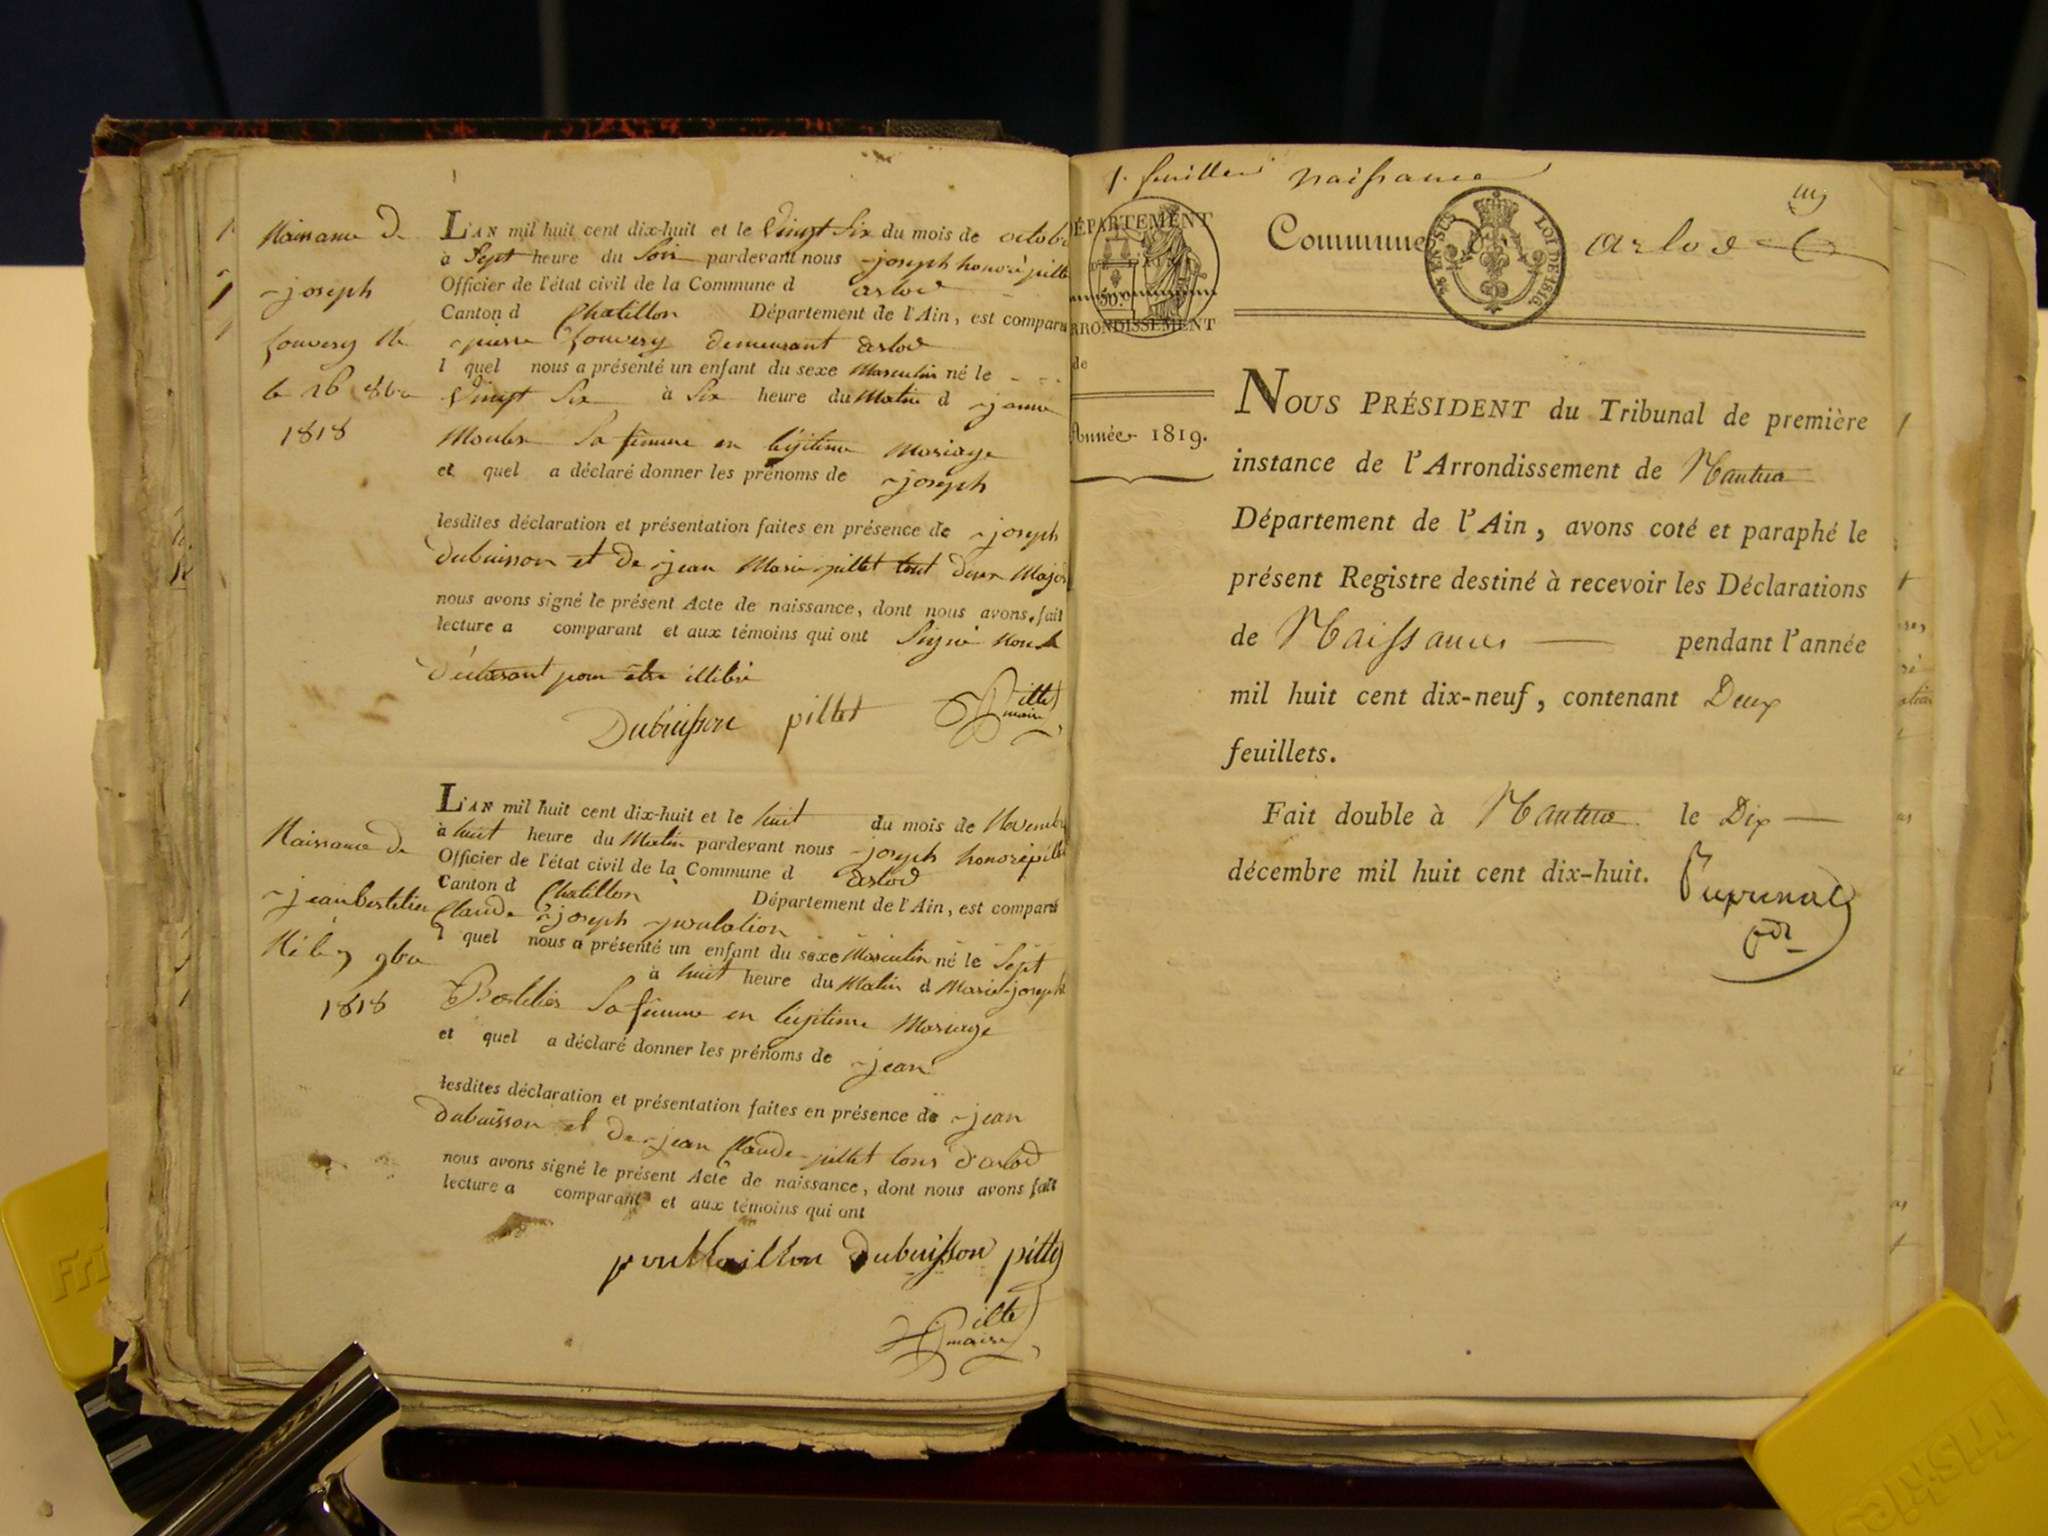 Naissance de
joseph
fouvery Né
le 26 8bre
1818
L'AN mil huit cent dix-huit et le Vingt Six du mois de octobre
à Sept heure du Soir pardevant nous joseph honoré pillet
Officier de l'état civil de la Commune d arlod
Canton d Chatillon Département de l'Ain, est comparu
pierre fouvery demeurant arlod
l quel nous a présenté un enfant du sexe Masculin né le
Vingt Six à Six heure du Matin d jeanne
Sa femme en légitime Mariage
et quel a déclaré donner les prénoms de joseph
lesdites déclaration et présentation faites en présence de joseph
dubuisson et de jean Marie pillet tout deux Majors
nous avons signé le présent Acte de naissance, dont nous avons fait
lecture a comparant et aux témoins qui ont Signé non le
déclarant pour être illibré
Dubuisson pillet Pillet
maire
Naissance de
jean bertelier
Né le 7 9bre
1818
L'AN mil huit cent dix-huit et le huit du mois de Novembre
à huit heure du Matin pardevant nous joseph honoré pillet
Officier de l'état civil de la Commune d arlod
Canton d Chatillon Département de l'Ain, est comparu
Claude joseph
l quel nous a présenté un enfant du sexe Masculin né le Sept
à huit heure du Matin d Marie josephte
Bertelier Sa femme en légitime Mariage
et quel a déclaré donner les prénoms de jean
lesdites déclaration et présentation faites en présence de jean
dubuisson et de jean Claude pillet tous d'arlod
nous avons signé le présent Acte de naissance, dont nous avons fait
lecture a comparant et aux témoins qui ont
Dubuisson pillet
Pillet
maire
1. feuillet naissance
DÉPARTEMENT
DE L'AIN
ARRONDISSEMENT
de
Année 1819.
Commune d arlod
25 EN SUS LOI DE 1816
NOUS PRÉSIDENT du Tribunal de première
instance de l'Arrondissement de Nantua
Département de l'Ain, avons coté et paraphé le
présent Registre destiné à recevoir les Déclarations
de Naissances pendant l'année
mil huit cent dix-neuf, contenant Deux
feuillets.
Fait double à Nantua le Dix
décembre mil huit cent dix-huit.
Friskies